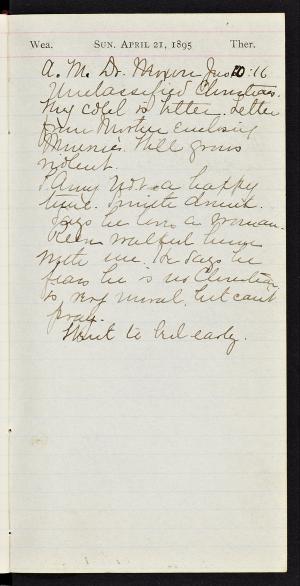 Wea. SUN. APRIL 21, 1895 Ther.
A. M. Dr. Jas 2:16
Unclassified Christians.
My cold is better. Letter
from Mother enclosing
Minnie's. Will grows
violent.
a happy
time.
Says he loves a woman.
home
with me. He says he
fears he is no Christian
is very moral, but can't
pray.
Went to bed early.